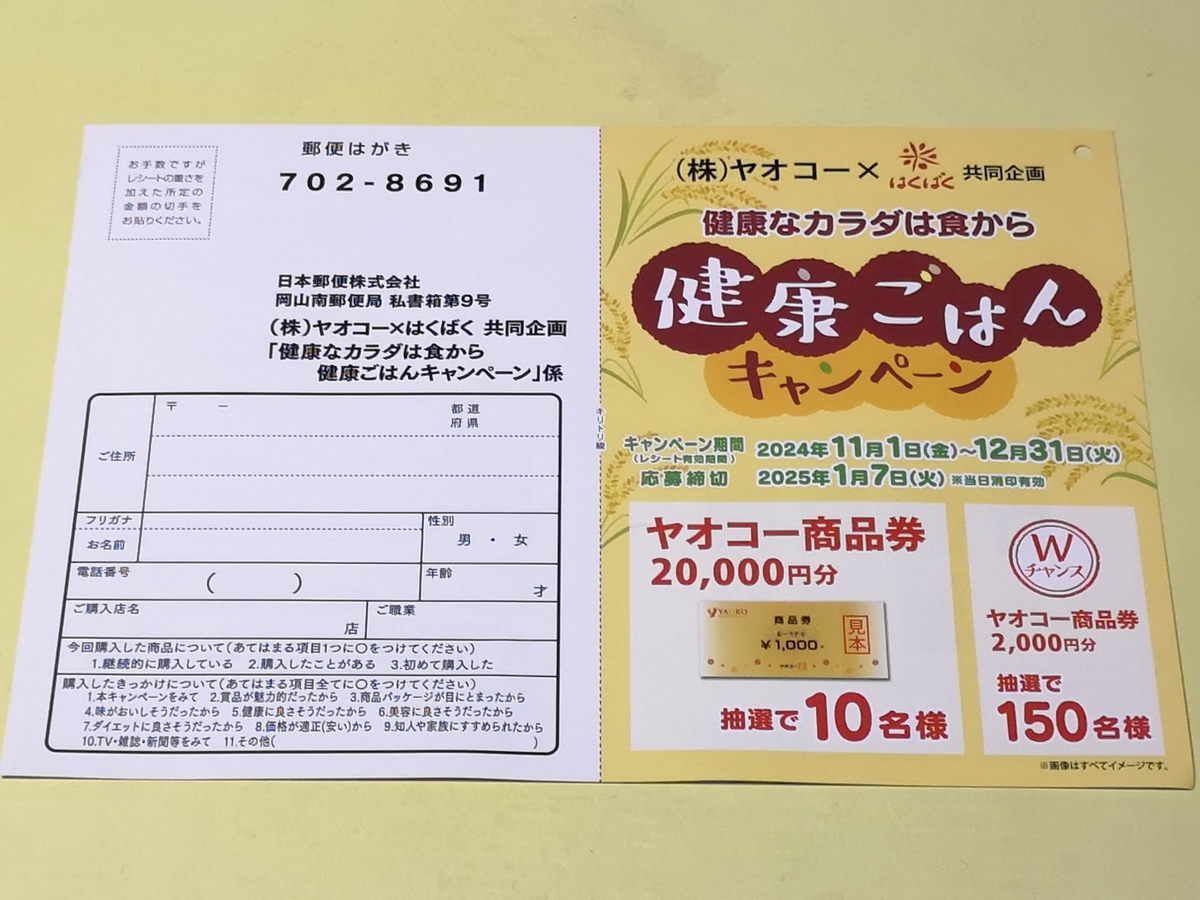 お手数ですが
レシートの重さを
加えた所定の
金額の切手を
お貼りください。
郵便はがき
702-8691
日本郵便株式会社
岡山南郵便局 私書箱第9号
(株)ヤオコー×はくばく 共同企画
「健康なカラダは食から
健康ごはんキャンペーン」係
ご住所
〒 －
都道
府県
フリガナ
お名前
性別
男 ・ 女
電話番号
( )
年齢
才
ご購入店名
店
ご職業
今回購入した商品について(あてはまる項目1つに○をつけてください)
1.継続的に購入している 2.購入したことがある 3.初めて購入した
購入したきっかけについて(あてはまる項目全てに○をつけてください)
1.本キャンペーンをみて 2.賞品が魅力的だったから 3.商品パッケージが目にとまったから
4.味がおいしそうだったから 5.健康に良さそうだったから 6.美容に良さそうだったから
7.ダイエットに良さそうだったから 8.価格が適正(安い)から 9.知人や家族にすすめられたから
10.TV・雑誌・新聞等をみて 11.その他( )
キリトリ線
(株)ヤオコー× はくばく 共同企画
健康なカラダは食から
健康ごはん
キャンペーン
キャンペーン期間 2024年11月1日(金)~12月31日(火)
(レシート有効期間)
応募締切 2025年1月7日(火) ※当日消印有効
ヤオコー商品券
20,000円分
YAOKO
商品券
¥1,000-
見本
ヤオコー
抽選で10名様
W
チャンス
ヤオコー商品券
2,000円分
抽選で
150名様
※画像はすべてイメージです。